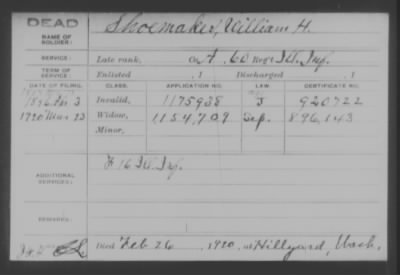 DEAD
NAME OF SOLDIER: Shoemaker, William H.
SERVICE: Late rank, Co. A. 60 Reg't Ill. Inf.
TERM OF SERVICE: Enlisted , 1 Discharged , 1
DATE OF FILING. CLASS. APPLICATION NO. LAW. CERTIFICATE NO.
3 Invalid, 1175938 J 920722
1920 Mar 23 Widow, 1,154,709 Sep. 896,143
Minor,
ADDITIONAL SERVICES: F 16 Ill. Inf.
REMARKS:
Died Feb 26 , 1920, at Hillyard, Wash.